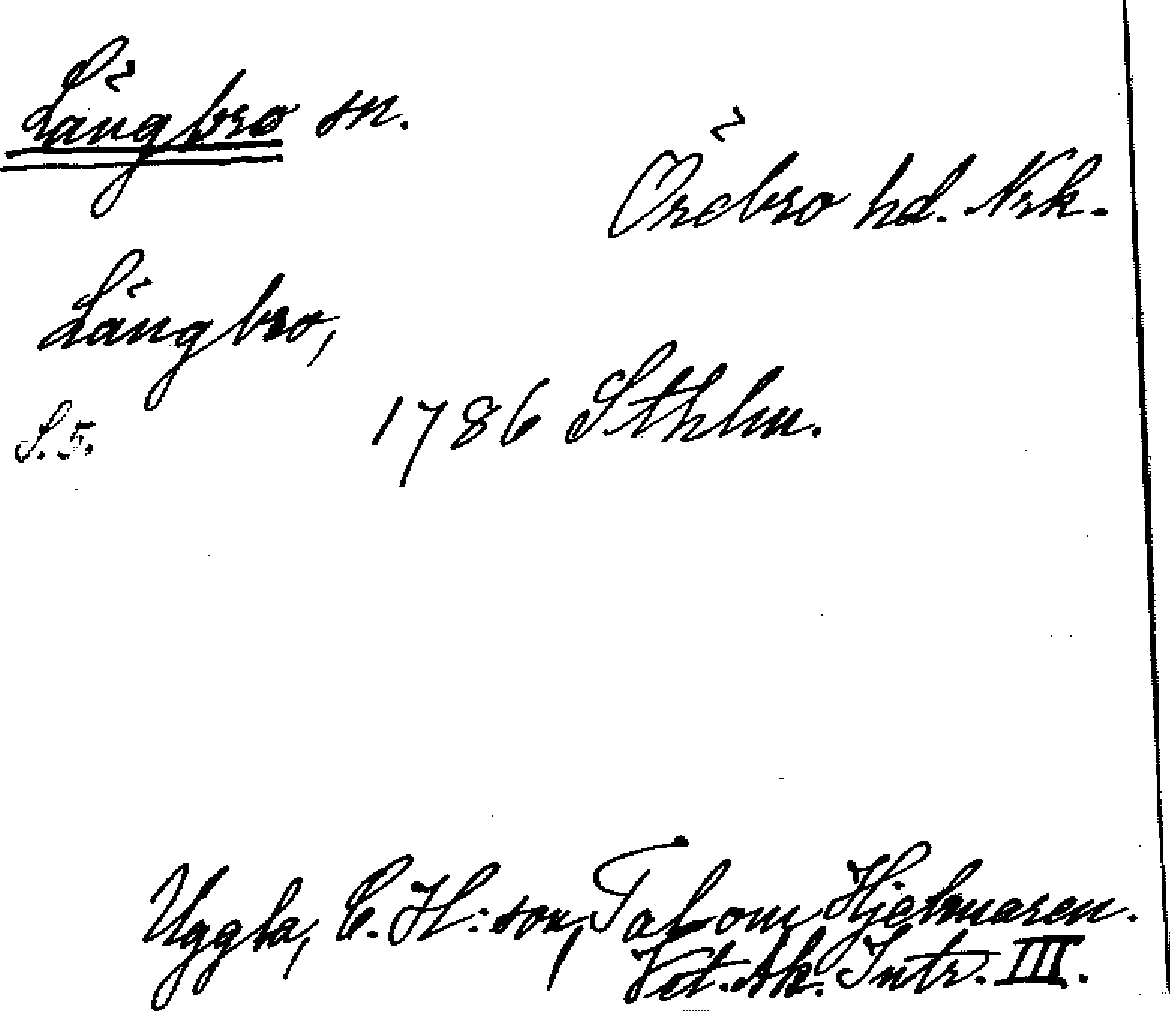 Långbro sn.
Örebro hd. Nrk.
Långbro,
S. 5.
1786 Sthlm.
Uggla, C. H:son, Tal om Hjelmaren.
Vet. Ak. Intr. III.